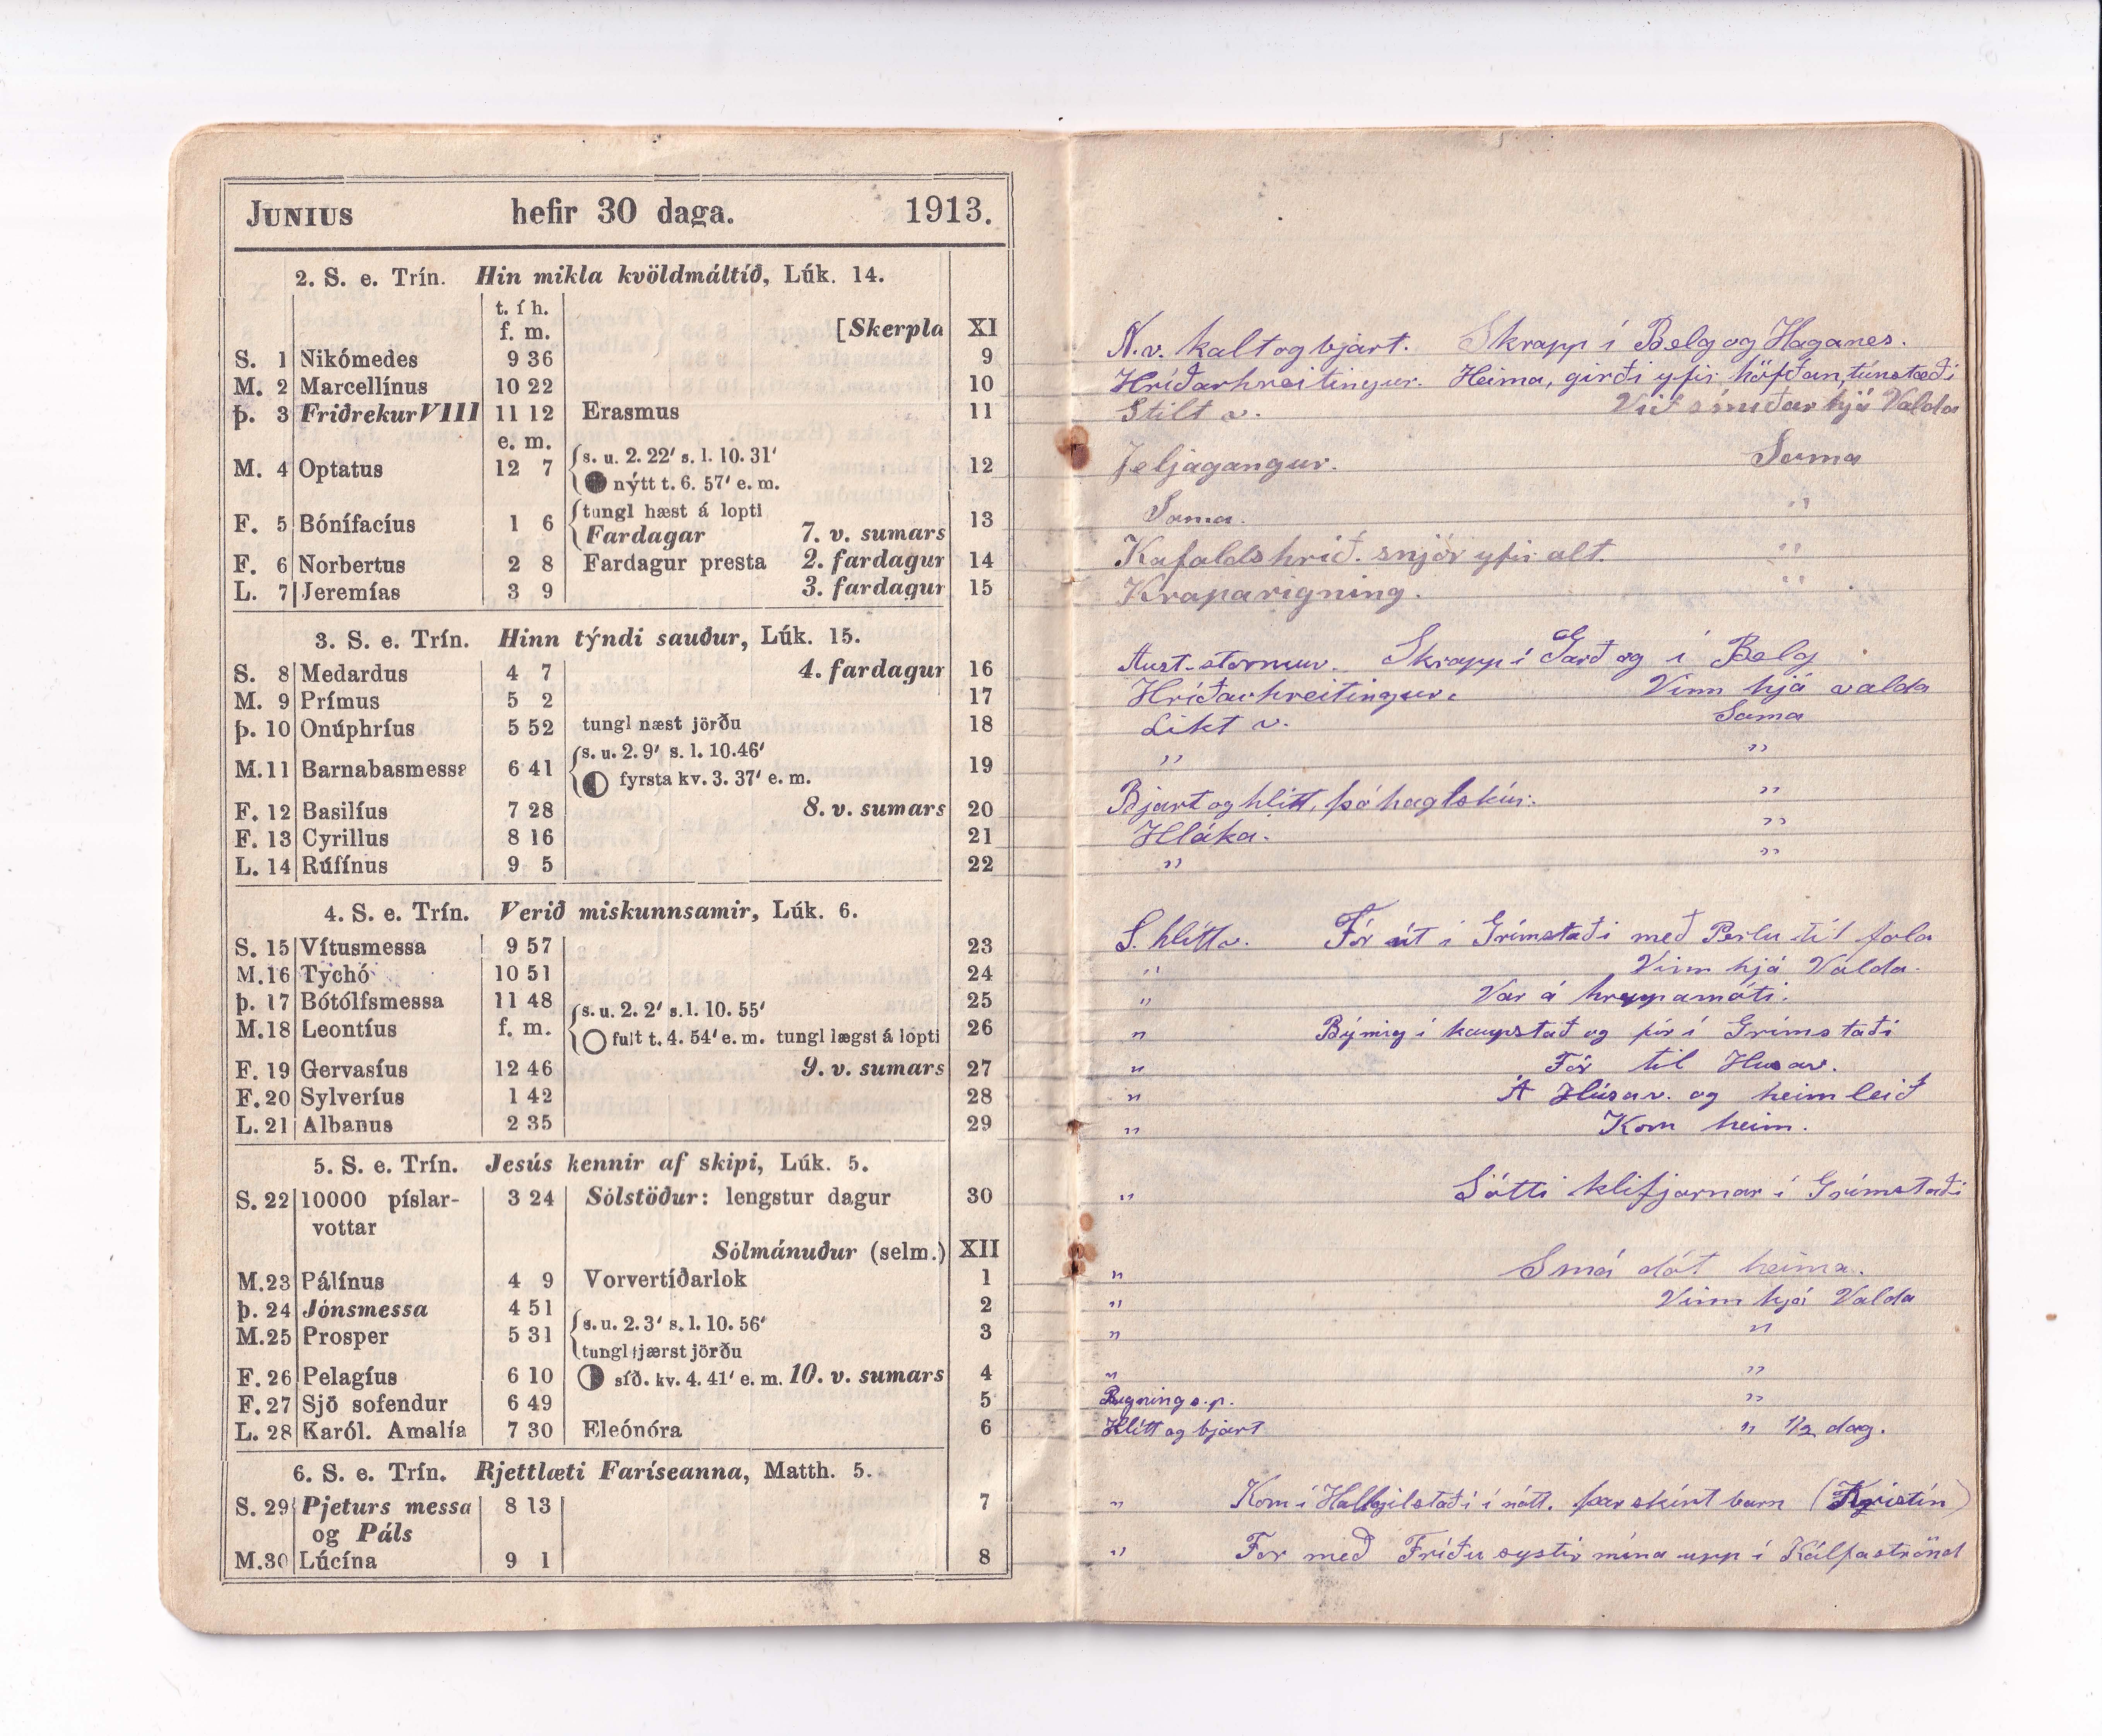 JUNIUS hefir 30 daga. 1913.
2. S. e. Trín. Hin mikla kvöldmáltíð, Lúk. 14.
t. í h.
f. m. [Skerpla XI
S. 1 Nikómedes 9 36 9
M. 2 Marcellínus 10 22 10
Þ. 3 Friðrekur VIII 11 12 Erasmus 11
e. m.
M. 4 Optatus 12 7 s. u. 2. 22' s. l. 10. 31' 12
nýtt t. 6. 57' e. m.
F. 5 Bónífacíus 1 6 tungl hæst á lopti 13
Fardagar 7. v. sumars
F. 6 Norbertus 2 8 Fardagur presta 2. fardagur 14
L. 7 Jeremías 3 9 3. fardagur 15
3. S. e. Trín. Hinn týndi sauður, Lúk. 15.
S. 8 Medardus 4 7 4. fardagur 16
M. 9 Prímus 5 2 17
Þ. 10 Onúphríus 5 52 tungl næst jörðu 18
M. 11 Barnabasmessa 6 41 s. u. 2. 9' s. l. 10.46' 19
fyrsta kv. 3. 37' e. m.
F. 12 Basilíus 7 28 8. v. sumars 20
F. 13 Cyrillus 8 16 21
L. 14 Rúfínus 9 5 22
4. S. e. Trín. Verið miskunnsamir, Lúk. 6.
S. 15 Vítusmessa 9 57 23
M. 16 Týchó 10 51 24
Þ. 17 Bótólfsmessa 11 48 s. u. 2. 2' s. l. 10. 55' 25
M. 18 Leontíus f. m. fult t. 4. 54' e. m. tungl lægst á lopti 26
F. 19 Gervasíus 12 46 9. v. sumars 27
F. 20 Sylveríus 1 42 28
L. 21 Albanus 2 35 29
5. S. e. Trín. Jesús kennir af skipi, Lúk. 5.
S. 22 10000 píslar- 3 24 Sólstöður: lengstur dagur 30
vottar
Sólmánuður (selm.) XII
M. 23 Pálínus 4 9 Vorvertíðarlok 1
Þ. 24 Jónsmessa 4 51 2
M. 25 Prosper 5 31 s. u. 2. 3' s. l. 10. 56' 3
tungl fjærst jörðu
F. 26 Pelagíus 6 10 síð. kv. 4. 41' e. m. 10. v. sumars 4
F. 27 Sjö sofendur 6 49 5
L. 28 Karól. Amalía 7 30 Eleónóra 6
6. S. e. Trín. Rjettlæti Faríseanna, Matth. 5.
S. 29 Pjeturs messa 8 13 7
og Páls
M. 30 Lúcína 9 1 8
N. v. kalt og bjart. Skrapp í Belg og Haganes.
Hríðarhreitingur. Heima, girði yfir höfðan, túnstæði
Stilt v. Við smíðar hjá Valda
Jeljagangur. Sama
Sama. "
Kafaldshríð. snjór yfir alt. "
Kraparigning. "
Aust. stormur. Skrapp í Garð og í Belg
Hríðarhreitingur. Vinn hjá valda
Líkt v. Sama
" "
Bjart og hlítt, þó haglskúr. "
Hláka. "
" "
S. hlítt v. Fór út í Grímstaði með Perlu til fola
" Vinn hjá Valda.
" Var á hreppamóti.
" Bý mig í kaupstað og fór í Grímstaði
" Fór til Husav.
" Á Húsav. og heimleið
" Kom heim.
" Sótti klifjarnar í Grímstaði
" Smá dót heima.
" Vinn hjá Valda
" "
" "
Rigning s.p. "
Hlítt og bjart " 1/2 dag.
" Kom í Hallgilstaði í nótt. þar skírt barn (Kristín)
" For með Fríðu systir mína upp í Kálfaströnd